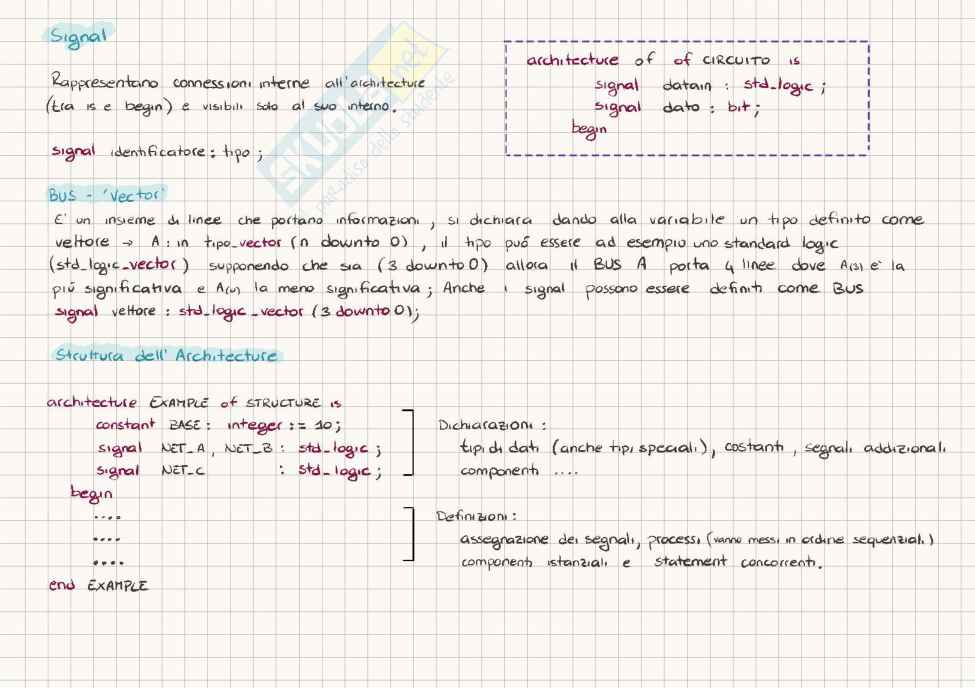 Signal
Rappresentano connessioni interne all'architecture
(tra is e begin) e visibili solo al suo interno.
signal identificatore : tipo ;
architecture of of CIRCUITO is
signal datain : std_logic ;
signal dato : bit ;
begin
SKUOLA.net
paradiso dello studente
BUS - 'Vector'
E' un insieme di linee che portano informazioni , si dichiara dando alla variabile un tipo definito come
vettore → A : in tipo_vector (n downto 0) , il tipo può essere ad esempio uno standard logic
(std_logic_vector) supponendo che sia (3 downto 0) allora il BUS A porta 4 linee dove A(3) e' la
più significativa e A(0) la meno significativa ; Anche i signal possono essere definiti come BUS
signal vettore : std_logic_vector (3 downto 0);
Struttura dell' Architecture
architecture EXAMPLE of STRUCTURE is
constant BASE : integer := 10 ;
signal NET_A , NET_B : std_logic ;
signal NET_C : std_logic ;
begin
....
....
....
end EXAMPLE
Dichiarazioni :
tipi di dati (anche tipi speciali) , costanti , segnali addizionali
componenti ....
Definizioni :
assegnazione dei segnali, processi (vanno messi in ordine sequenziali)
componenti istanziali e statement concorrenti.